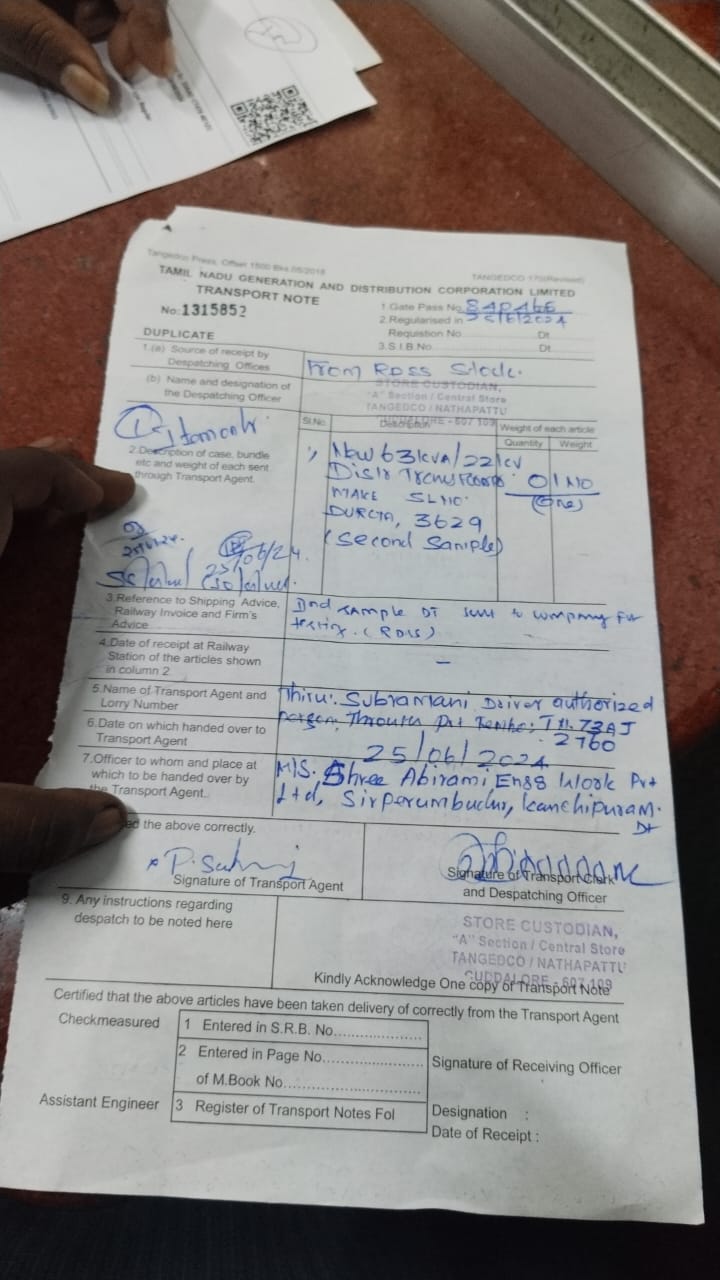 Tangedco Press, Offset 1500 Bks.05/2018
TANGEDCO 170(Revised)
TAMIL NADU GENERATION AND DISTRIBUTION CORPORATION LIMITED
TRANSPORT NOTE
No:1315852
1.Gate Pass No.
2.Regularised in 25/6/2024
Requistion No Dt
3.S.I.B.No. Dt
DUPLICATE
1.(a) Source of receipt by
Despatching Offices
From RDSS Stock.
(b) Name and designation of
the Despatching Officer
STORE CUSTODIAN,
"A" Section / Central Store
TANGEDCO / NATHAPATTU
CUDDALORE - 607 109
Sl.No. Description Weight of each article
Quantity Weight
2.Description of case, bundle
etc and weight of each sent
through Transport Agent.
New 63kVA/22kv
Distr Transformer 01 NO
MAKE SLNO. (One)
DURGA, 3629
(Second Sample)
25/06/24.
3.Reference to Shipping Advice,
Railway Invoice and Firm's
Advice
IInd sample DT sent to company for
testing. (RDSS)
4.Date of receipt at Railway
Station of the articles shown
in column 2
–
5.Name of Transport Agent and
Lorry Number
Thiru. Subramani, Driver authorized
person, Through Pvt
2760
6.Date on which handed over to
Transport Agent
25/06/2024
7.Officer to whom and place at
which to be handed over by
the Transport Agent.
M/S. Shree Abirami Engg Work Pvt
Ltd, Sirperumbudur, Kanchipuram.
Dt
ed the above correctly.
Signature of Transport Agent
Signature of Transport Clerk
and Despatching Officer
9. Any instructions regarding
despatch to be noted here
STORE CUSTODIAN,
"A" Section / Central Store
TANGEDCO / NATHAPATTU
CUDDALORE - 607 109
Kindly Acknowledge One copy of Transport Note
Certified that the above articles have been taken delivery of correctly from the Transport Agent
Checkmeasured
1 Entered in S.R.B. No.....................
2 Entered in Page No........................
of M.Book No.................................
Signature of Receiving Officer
Assistant Engineer
3 Register of Transport Notes Fol
Designation :
Date of Receipt :